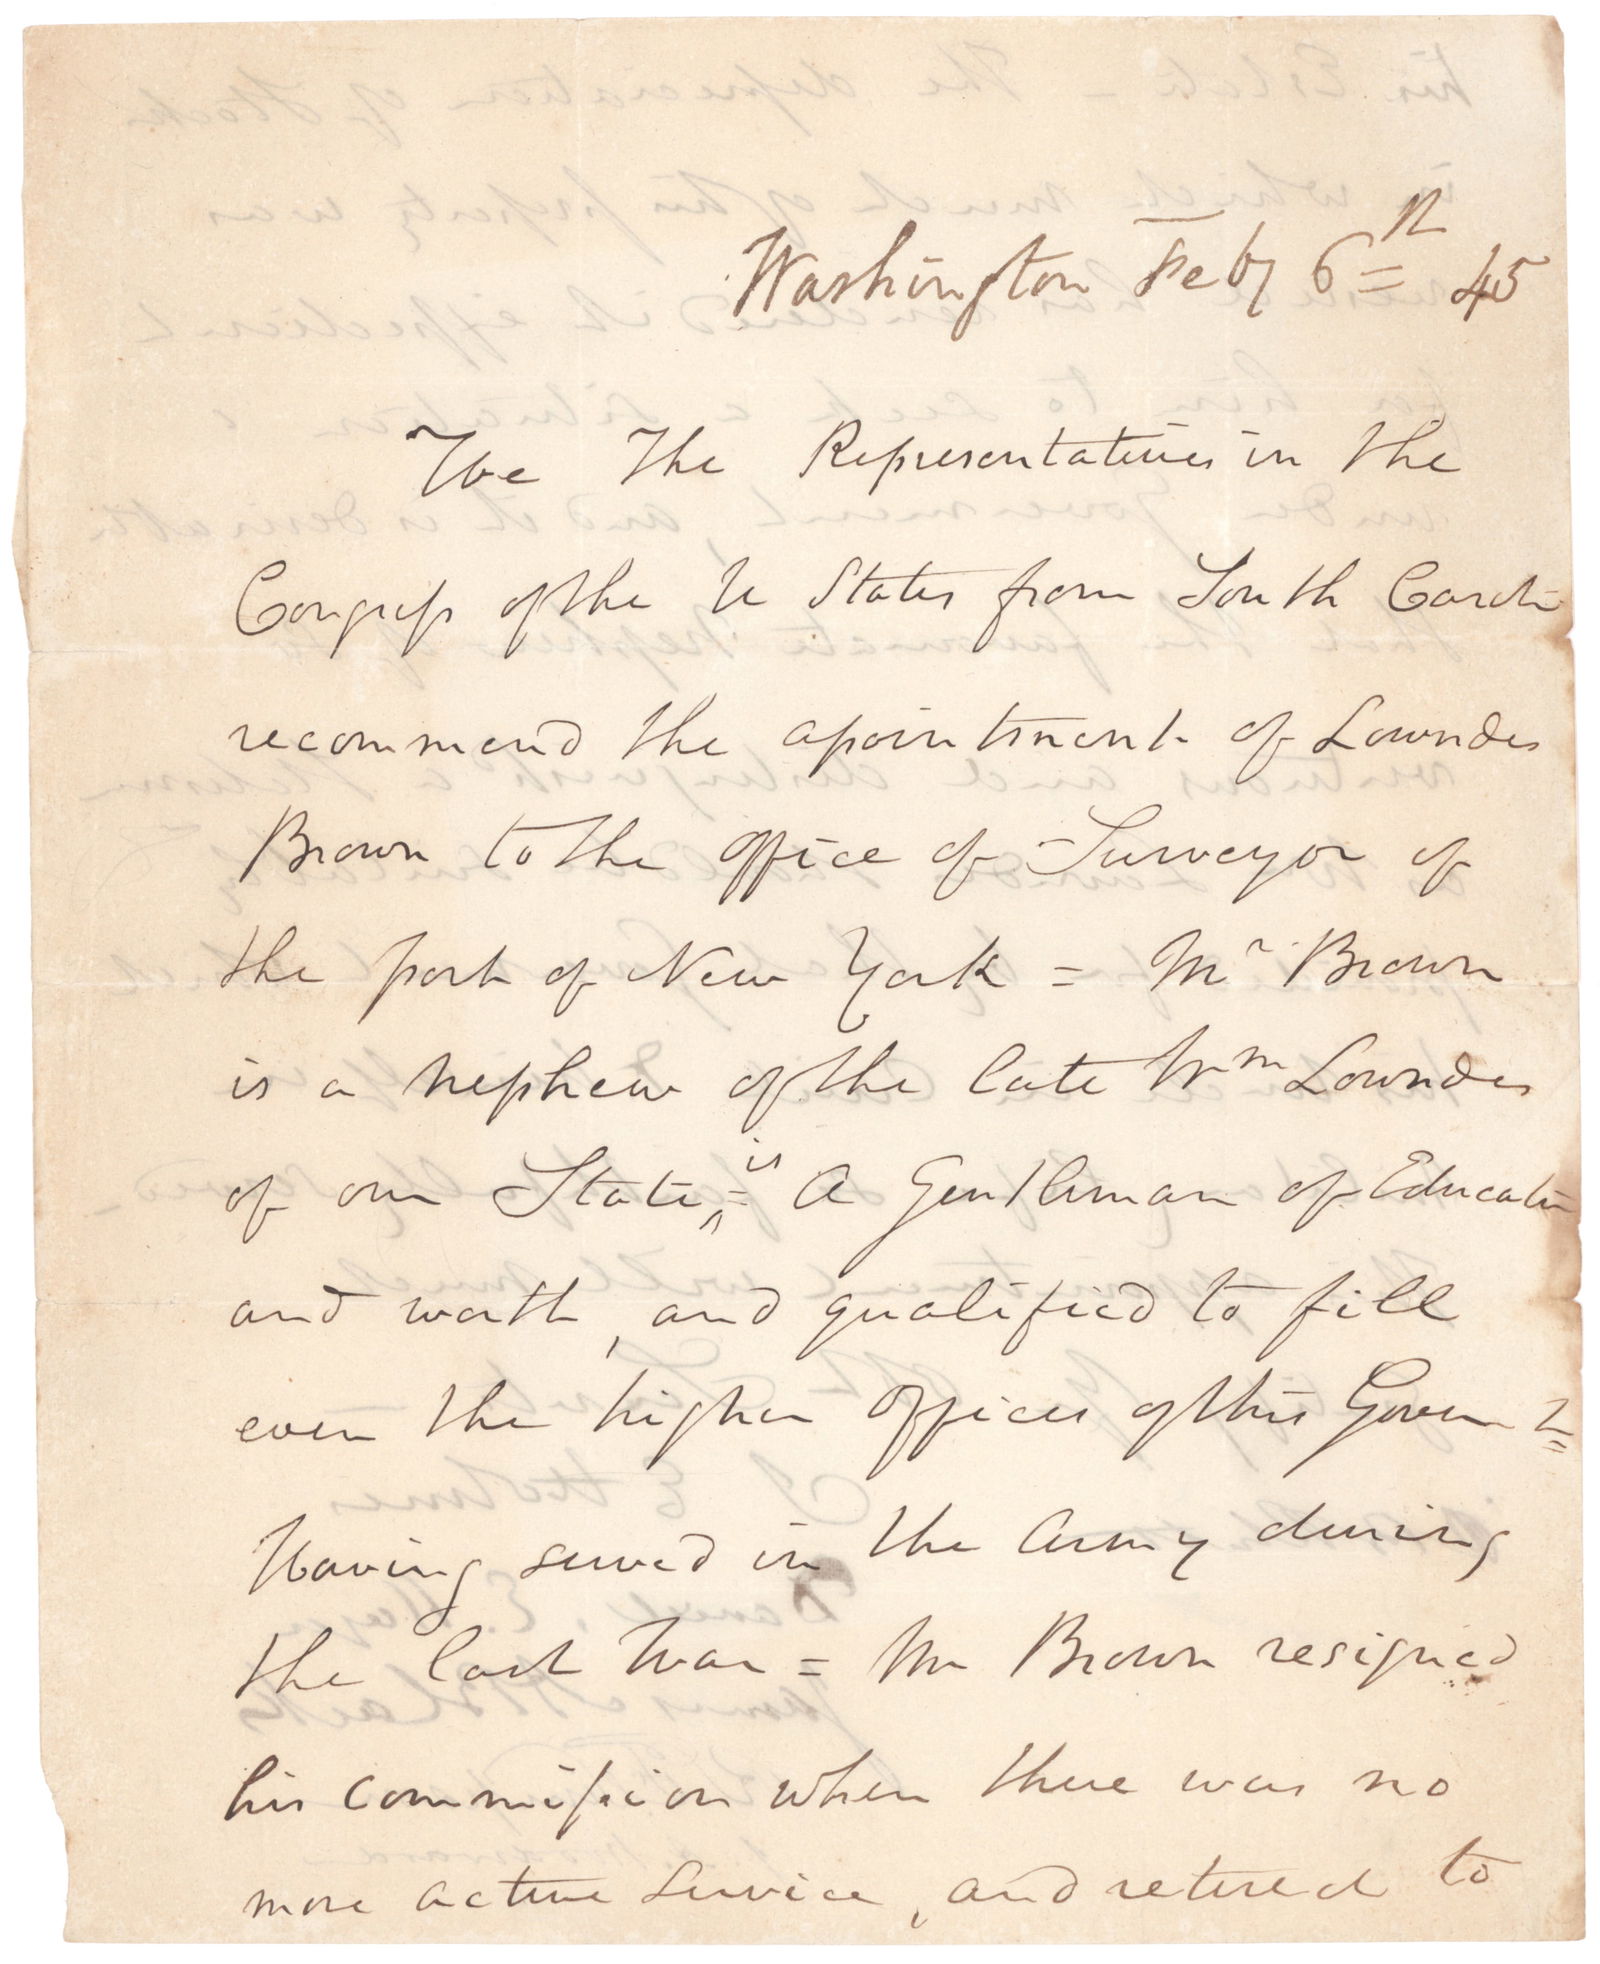 Washington Feby 6th 45
We The Representatives in the
Congress of the U States from South Carolin
recommend the apointment of Lowndes
Brown to the office of Surveyor of
the port of New York = Mr Brown
is a nephew of the late Wm Lowndes
of our State, = is A Gentleman of Educatin
and worth, and qualified to fill
even the higher offices of this Governt
Having served in the Army during
the last War = Mr Brown resigned
his commission when there was no
more active service, and retired to